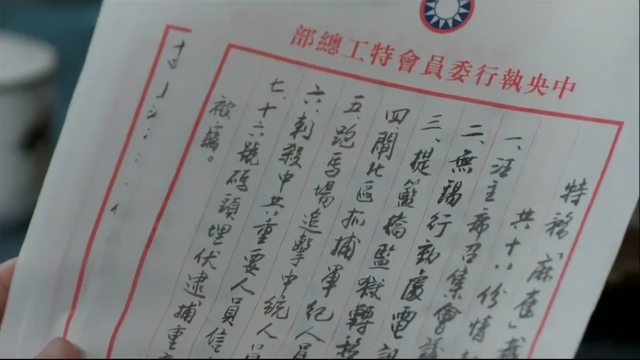 中央執行委員會特工總部
特務「麻雀」
共十八份情
一、汪主席召集會議
二、無錫行動處電訊
三、提籃橋監獄轉移
四、閘北區抓捕軍紀人員
五、跑馬場追擊中統人員
六、刺殺中共重要人員信
七、十六號碼頭埋伏逮捕重
被竊。